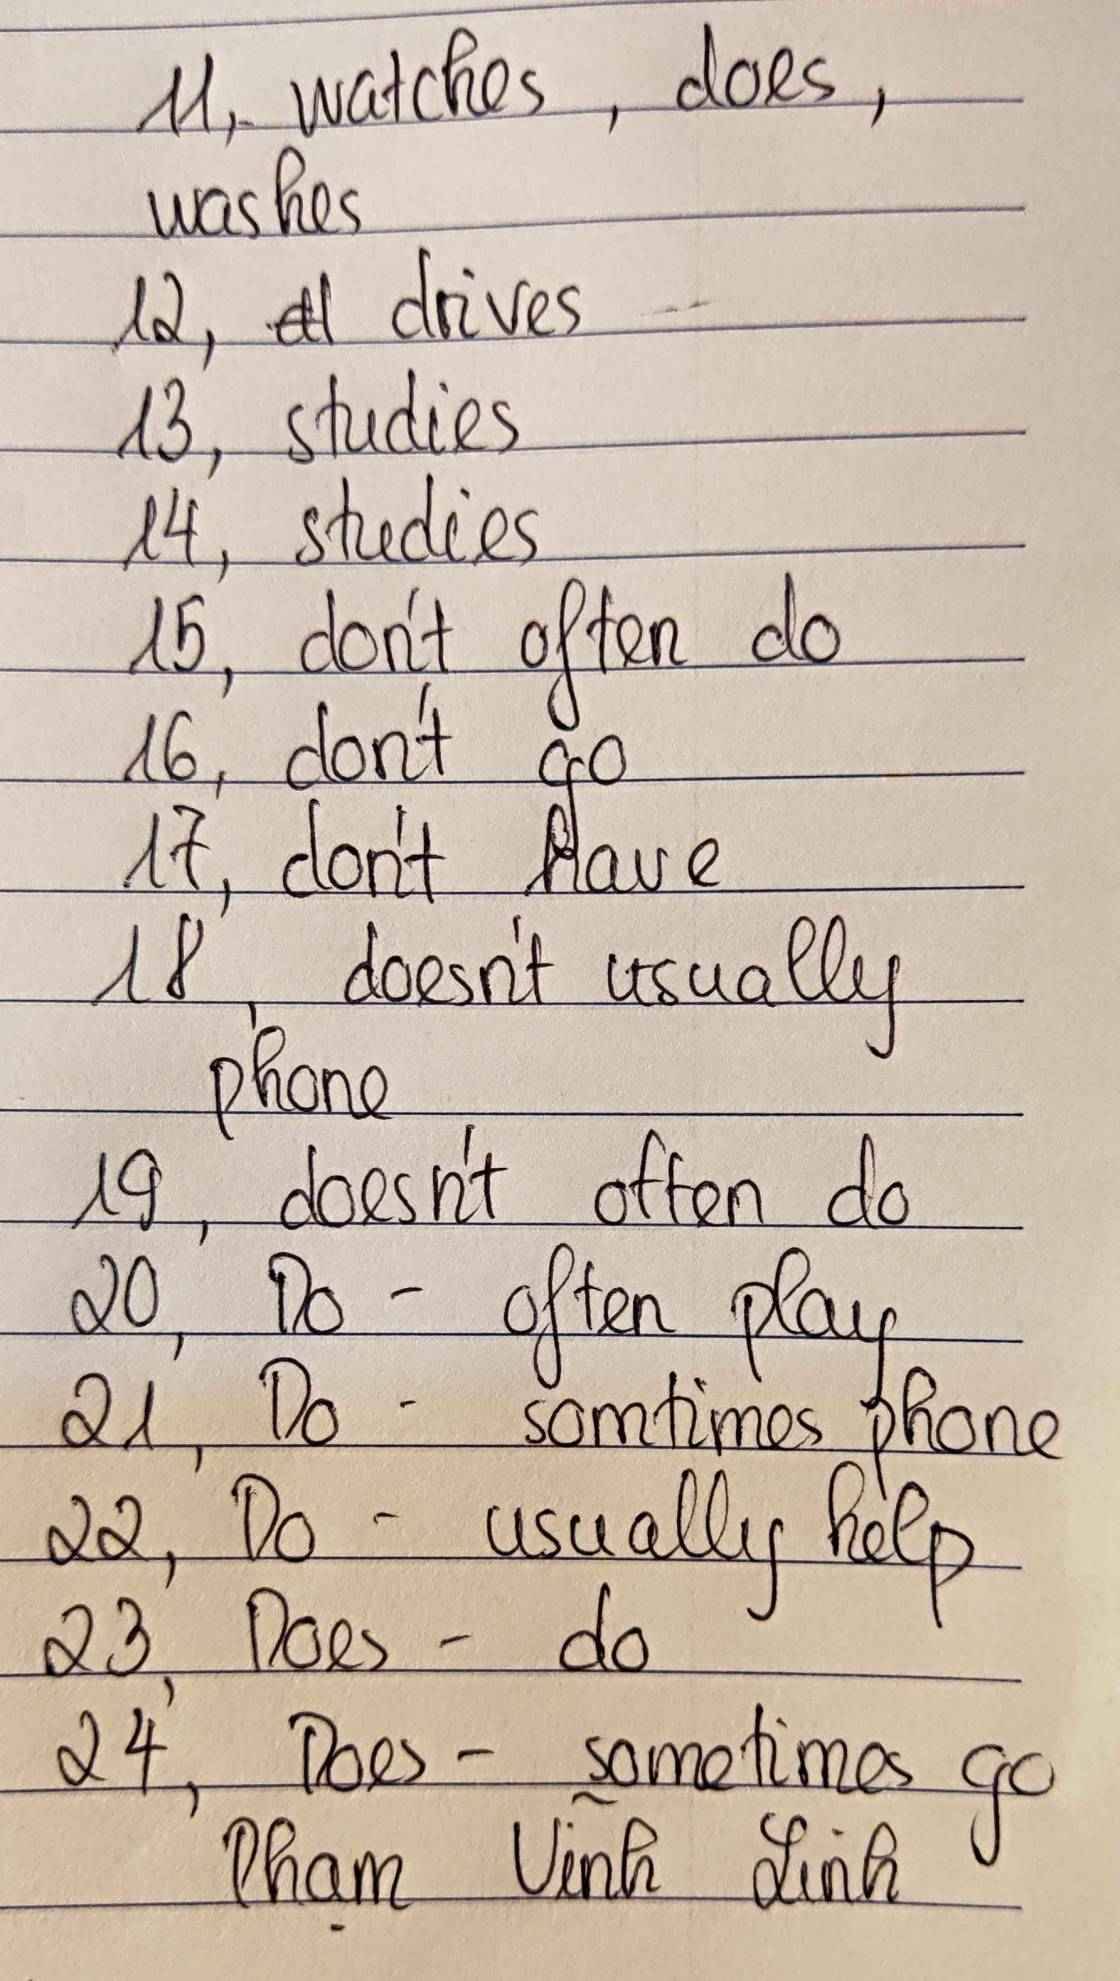 11, watches, does,
washes
12, drives
13, studies
14, studies
15, don't often do
16, don't go
17, don't have
18, doesn't usually
phone
19, doesn't often do
20, Do - often play
21, Do - somtimes phone
22, Do - usually help
23, Does - do
24, Does - sometimes go
Phạm Vĩnh Linh